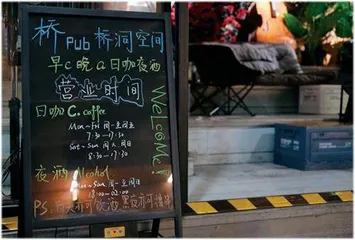 桥 Pub 桥洞空间
早c晚a日咖夜酒
营业时间
WeLCoMe!
日咖 C. coffee
Mon~Fri 周一至周五
7:30-17:30
Sat~Sun 周六周日
8:30-17:30
夜酒 Alcohol
Mon~Sun 周一至周日
18:00-02:00